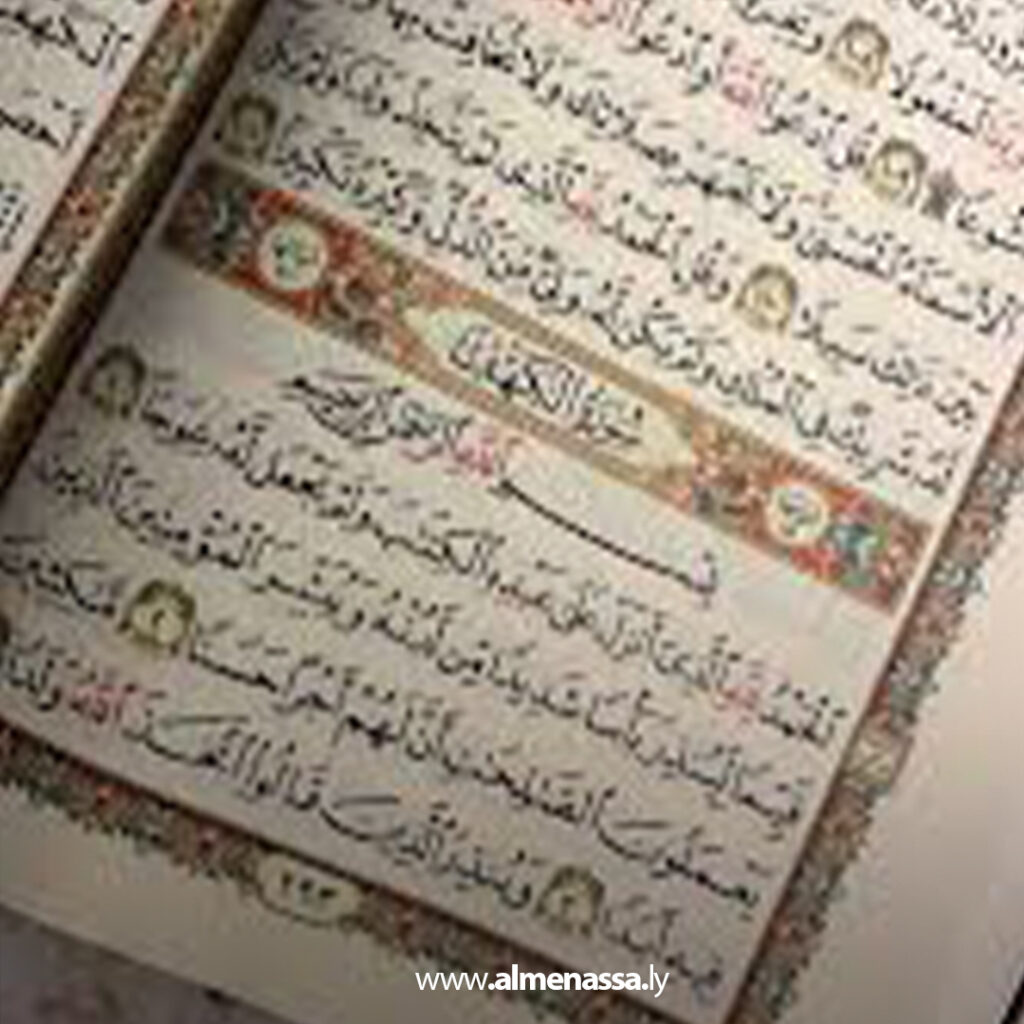 لَمَفْعُولًا
خُشُوعًا ۩ ﴿١٠٩﴾ قُلِ ادْعُوا اللَّهَ أَوِ ادْعُوا الرَّحْمَٰنَ
الْأَسْمَاءُ الْحُسْنَىٰ وَلَا تَجْهَرْ بِصَلَاتِكَ وَلَا تُخَافِتْ بِهَا
بَيْنَ ذَٰلِكَ سَبِيلًا ﴿١١٠﴾ وَقُلِ الْحَمْدُ لِلَّهِ الَّذِي لَمْ يَتَّخِذْ وَلَدًا وَلَمْ يَكُن
لَّهُ شَرِيكٌ فِي الْمُلْكِ وَلَمْ يَكُن لَّهُ وَلِيٌّ مِّنَ الذُّلِّ وَكَبِّرْهُ تَكْبِيرًا ﴿١١١﴾
سُورَةُ الْكَهْفِ
بِسْمِ اللَّهِ الرَّحْمَٰنِ الرَّحِيمِ
الْحَمْدُ لِلَّهِ الَّذِي أَنزَلَ عَلَىٰ عَبْدِهِ الْكِتَابَ وَلَمْ يَجْعَل لَّهُ عِوَجَا ﴿١﴾
قَيِّمًا لِّيُنذِرَ بَأْسًا شَدِيدًا مِّن لَّدُنْهُ وَيُبَشِّرَ الْمُؤْمِنِينَ الَّذِينَ
يَعْمَلُونَ الصَّالِحَاتِ أَنَّ لَهُمْ أَجْرًا حَسَنًا ﴿٢﴾ مَّاكِثِينَ
فِيهِ أَبَدًا ﴿٣﴾ وَيُنذِرَ الَّذِينَ قَالُوا اتَّخَذَ اللَّهُ وَلَدًا
٢٩٣
www.almenassa.ly